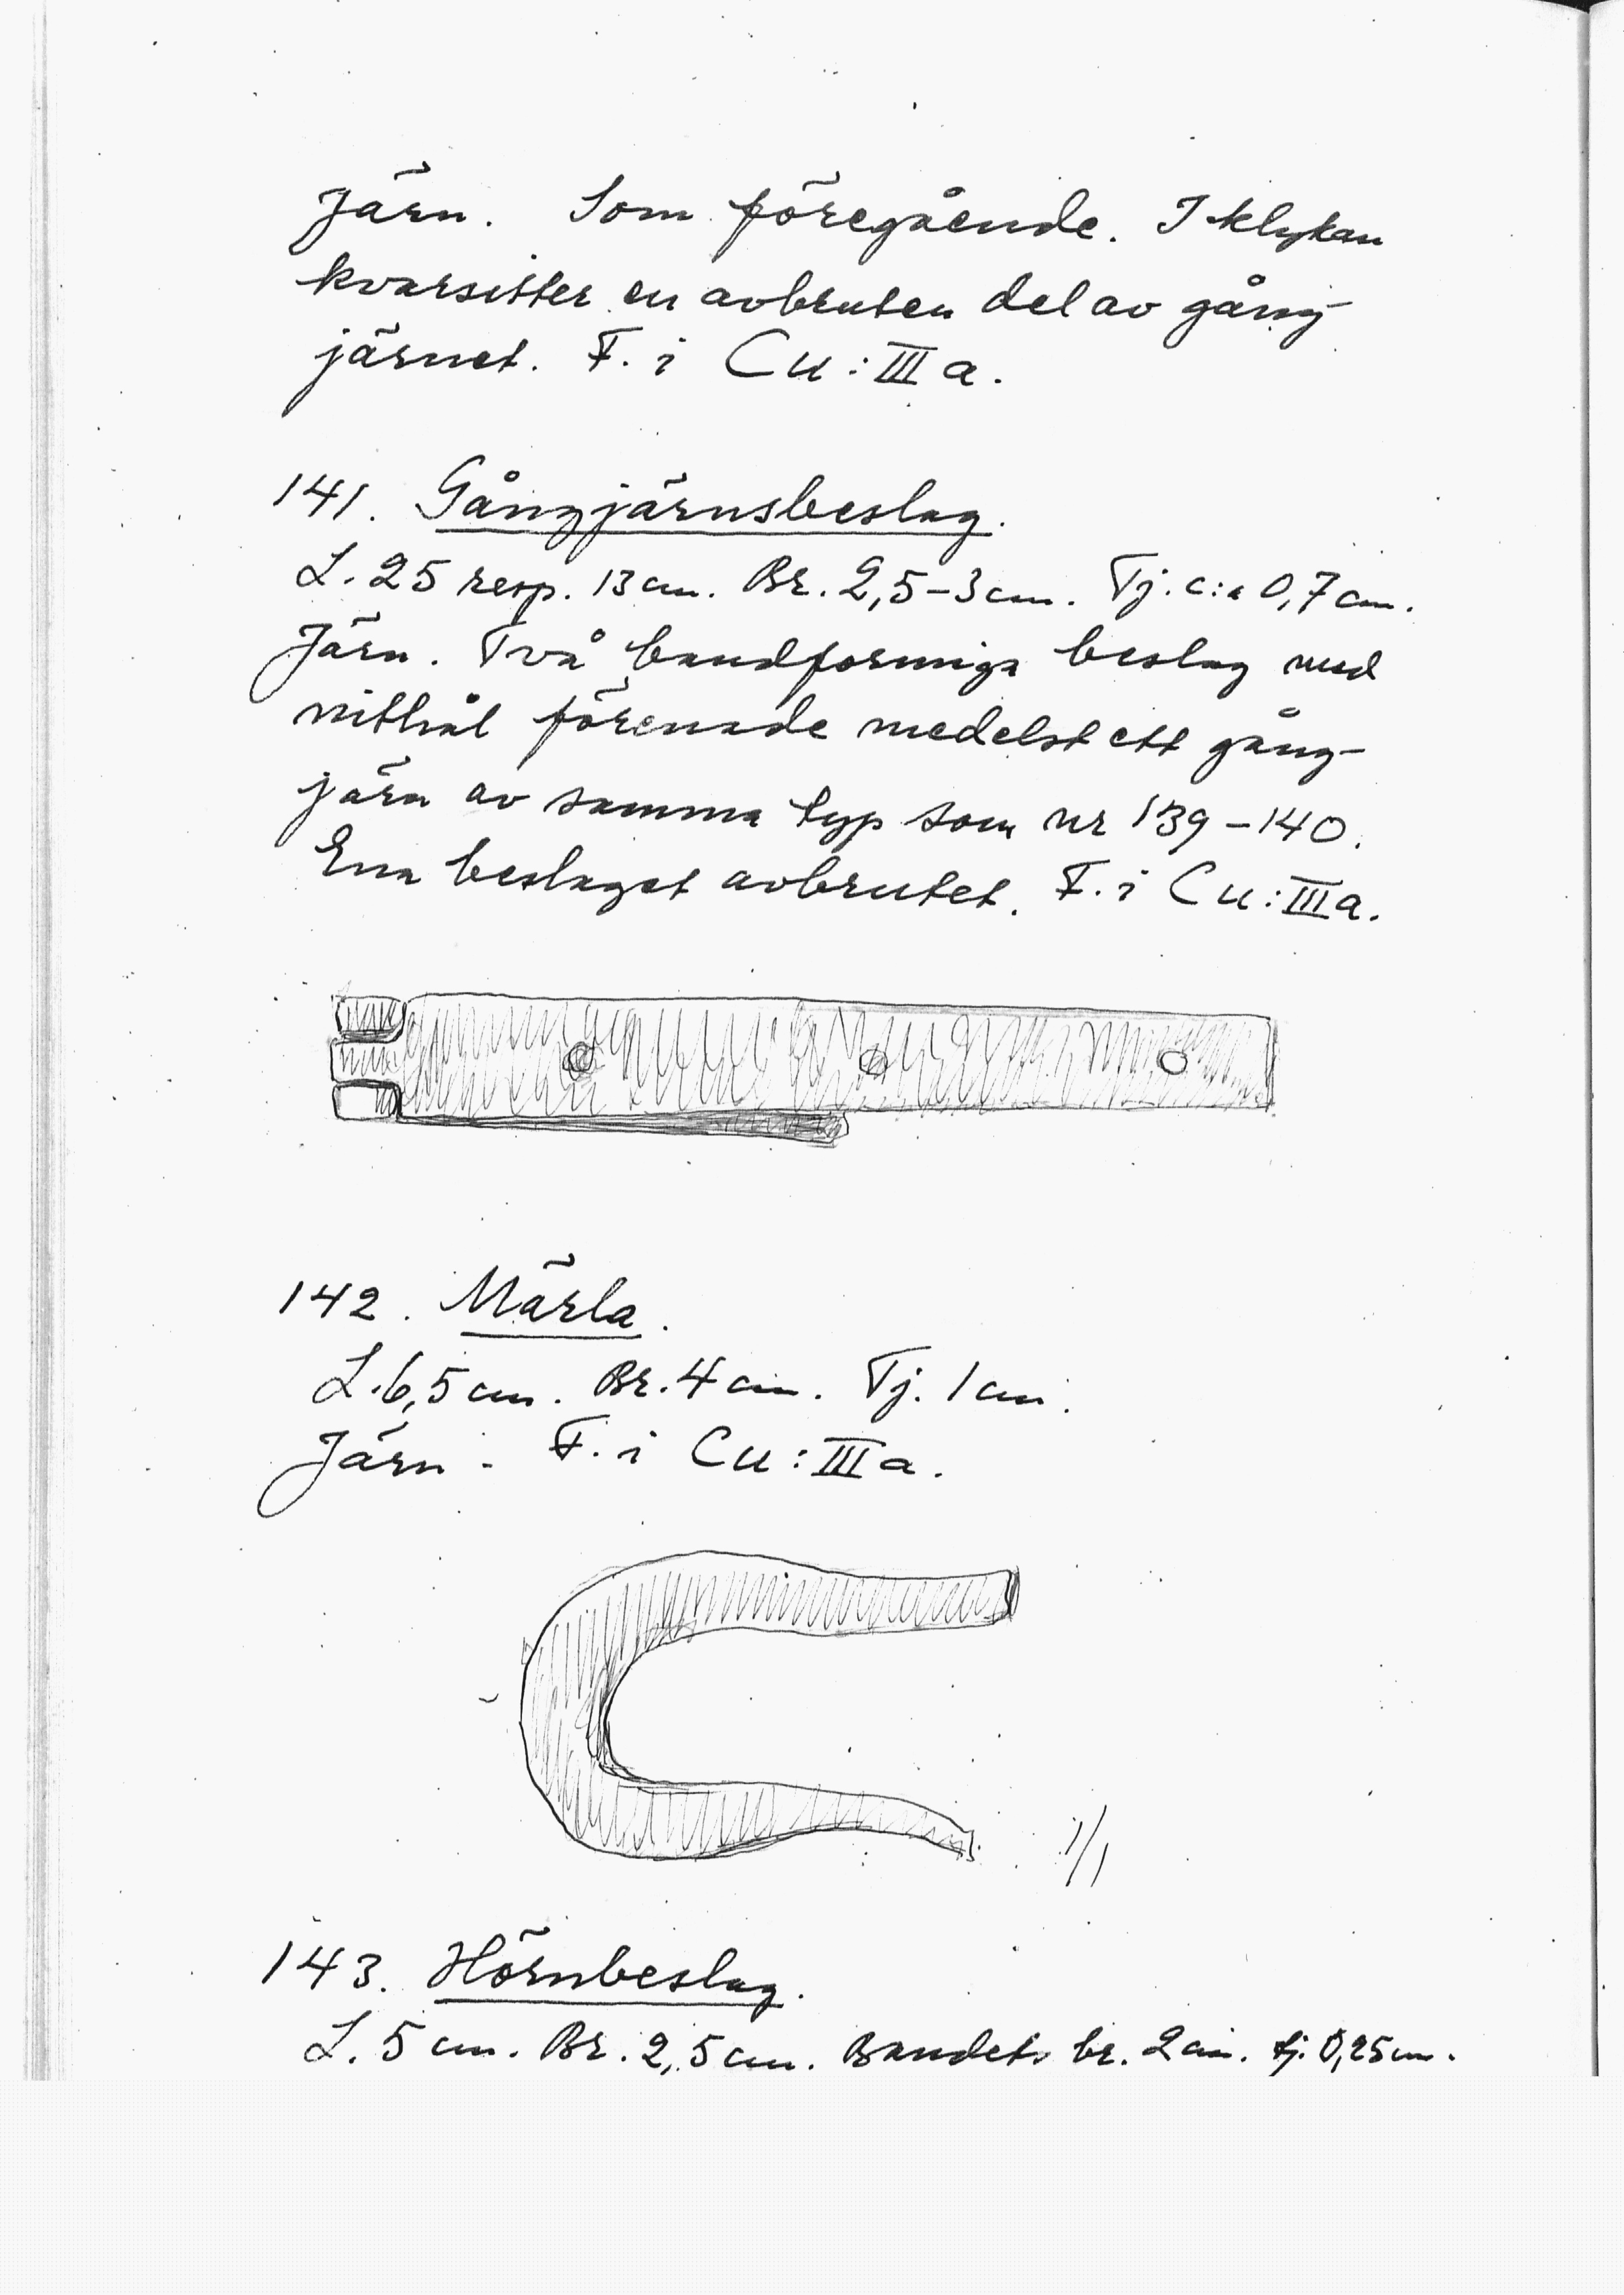 Järn. Som föregående. I klykan
kvarsitter en avbruten del av gång-
järnet. F. i Cu:III a.
141. Gångjärnsbeslag.
L. 25 resp. 13 cm. Br. 2,5-3 cm. Tj. c:a 0,7 cm.
Järn. Två bandformiga beslag med
nithål förenade medelst ett gång-
järn av samma typ som nr 139-140.
Ena beslaget avbrutet. F. i Cu:III a.
142. Märla.
L. 6,5 cm. Br. 4 cm. Tj. 1 cm.
Järn. F. i Cu:III a.
1/1
143. Hörnbeslag.
L. 5 cm. Br. 2,5 cm. Bandets br. 2 cm. tj. 0,25 cm.